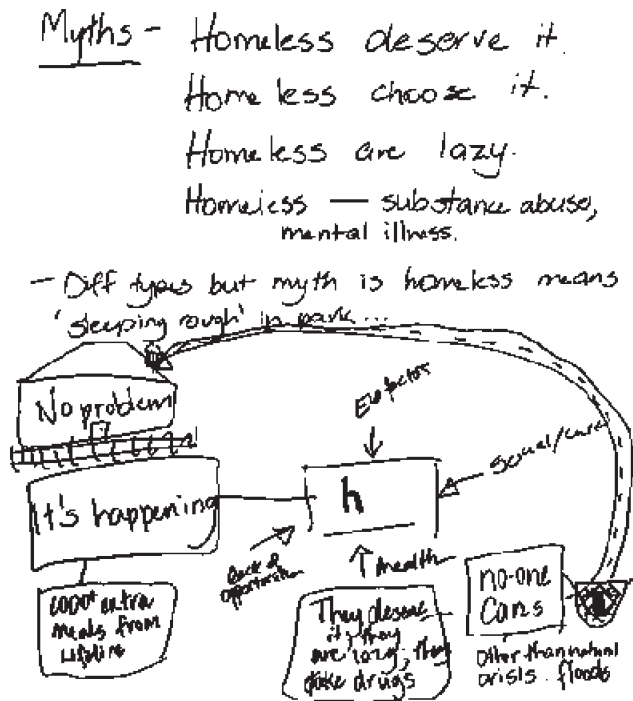 Myths - Homeless deserve it.
Homeless choose it.
Homeless are lazy.
Homeless — substance abuse,
mental illness.
- Diff types but myth is homeless means
'sleeping rough' in park...
No problem
It's happening
extra
meals from
Lifeline
h
Lack of
health
They deserve
it, they
are lazy, they
take drugs
no-one
cares
Other than natural
crisis. floods